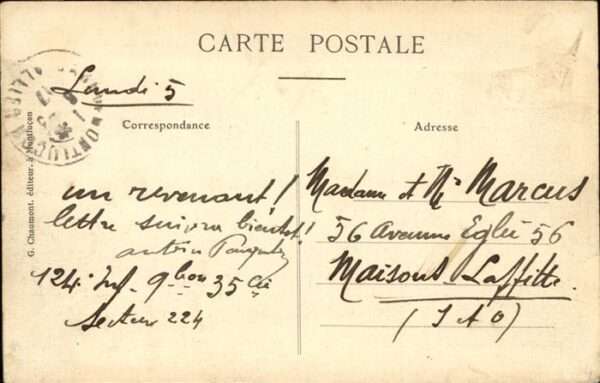 CARTE POSTALE
Lundi 5
Correspondance
Adresse
MONTLUÇON
G. Chaumont, éditeur, à Montluçon
un revenant!
lettre suivra bientôt!
124. Inf. 9 bon 35 Cie
Secteur 224
Madame et Mr MARCUS
56 Avenue Eglé 56
Maisons-Laffitte.
(S et O)